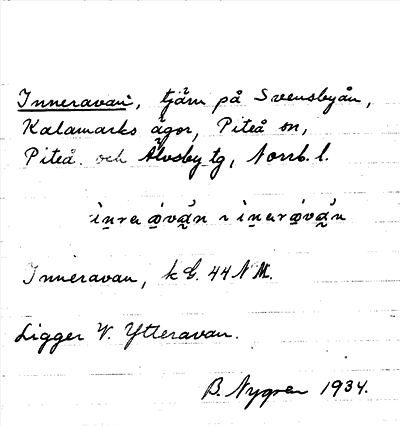 Inneravan, tjärn på Svensbyån,
Kalamarks ägor, Piteå sn,
Piteå och Älvsby tg, Norrb. l.
Inneravan, k G. 44 NM.
Ligger V. Ytteravan.
B. Nygren 1934.